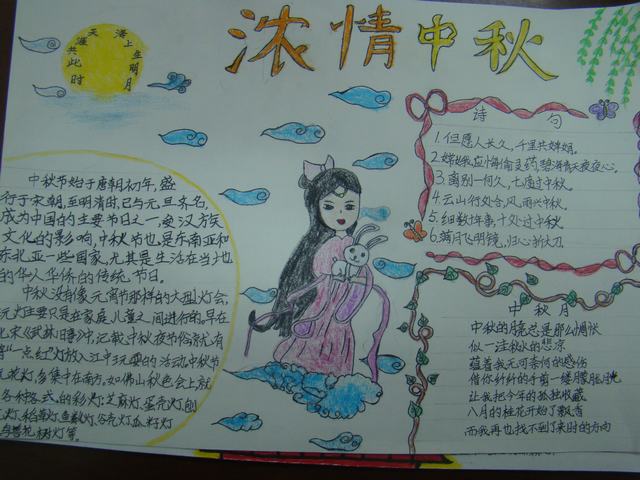 浓情中秋
海上生明月
天涯共此时
中秋节始于唐朝初年,盛
行于宋朝,至明清时,已与元旦齐名,
成为中国的主要节日之一,受汉族
文化的影响,中秋节也是东南亚和
东北亚一些国家,尤其是生活在当地
的华人华侨的传统节日。
中秋没有像元宵节那样的大型灯会,
玩灯主要只是在家庭、儿童之间进行的。早在
北宋《武林旧事》中,记载中秋夜节俗,就有
将一点红灯放入江中玩耍的活动。中秋节
玩花灯,多集中在南方。如佛山秋色会上,就
各种各式的彩灯:芝麻灯、蛋壳灯、刨
花灯、稻草灯、鱼鳞灯、谷壳灯、瓜籽灯
鸟兽花树灯等。
诗句
1.但愿人长久,千里共婵娟。
2.嫦娥应悔偷灵药,碧海青天夜夜心。
3.离别一何久,七度过中秋。
4.云山行处合,风雨兴中秋。
5.细数坐事,十处过中秋。
6.满月飞明镜,归心折大刀
中秋月
中秋的月亮总是那么惆怅
似一汪秋水的悲凉
蕴着我无可奈何的感伤
借你纤纤的手剪一缕朦胧月光
让我把今年的孤独收藏
八月的桂花开始了飘香
而我再也找不到了来时的方向